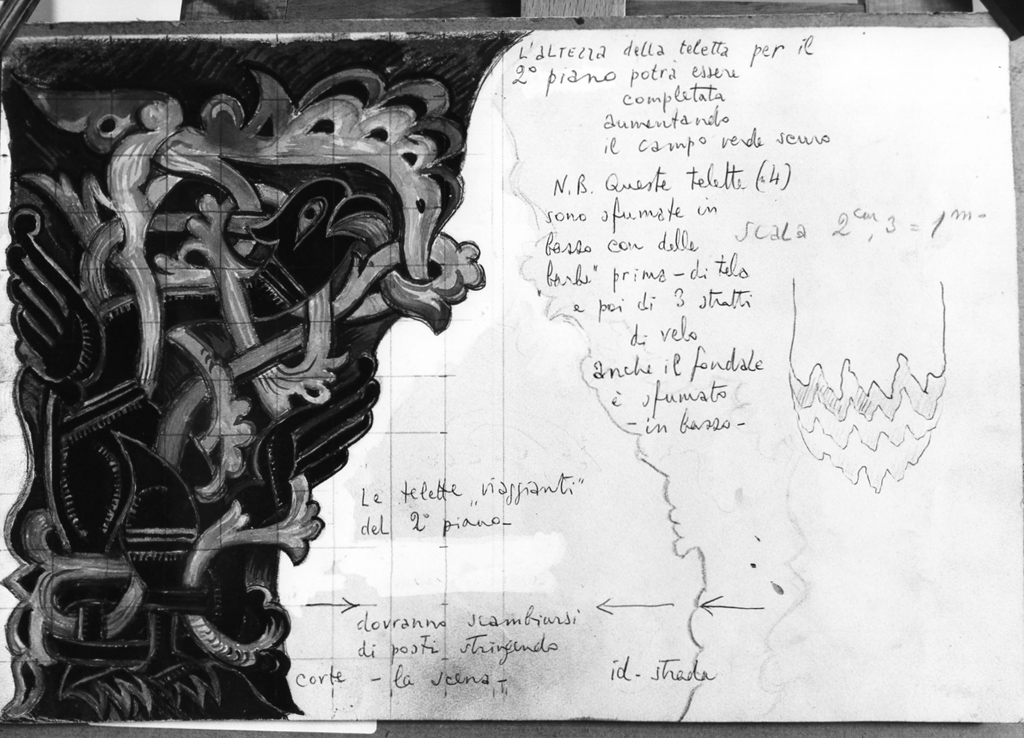 L'altezza della teletta per il
2° piano potrà essere
completata
aumentando
il campo verde scuro
N.B. Queste telette (4)
sono sfumate in
basso con delle
barbe" prima - di tela
e poi di 3 stratti
di velo
anche il fondale
è sfumato
- in basso -
Scala 2 cm,3 = 1 m-
Le telette „viaggianti"
del 2° piano -
dovranno scambiarsi
di posti stringendo
corte - la scena -
id - strada